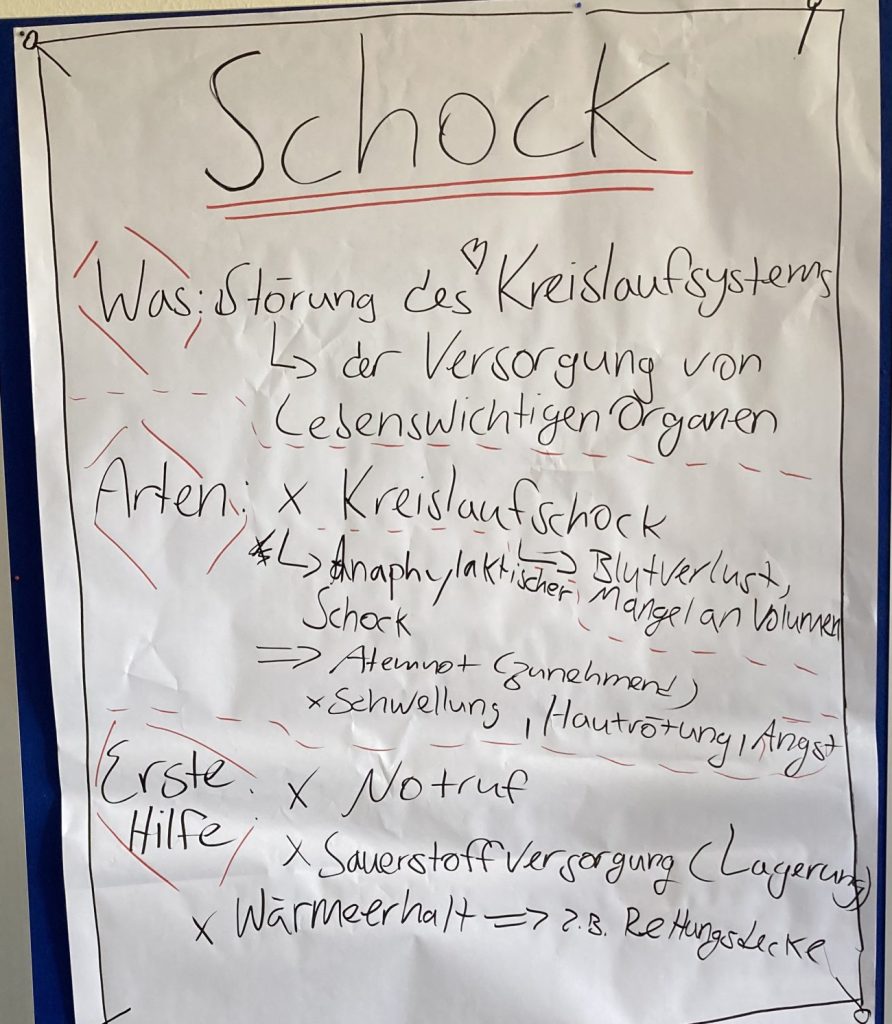 Schock
Was: Störung des Kreislaufsystems
↳ der Versorgung von
Lebenswichtigen Organen
Arten: x Kreislaufschock
↳ Blutverlust,
Mangel an Volumen
x ↳ Anaphylaktischer
Schock
=> Atemnot (zunehmend)
x Schwellung, Hautrötung, Angst
Erste Hilfe: x Notruf
x Sauerstoffversorgung (Lagerung)
x Wärmeerhalt => z.B. Rettungsdecke